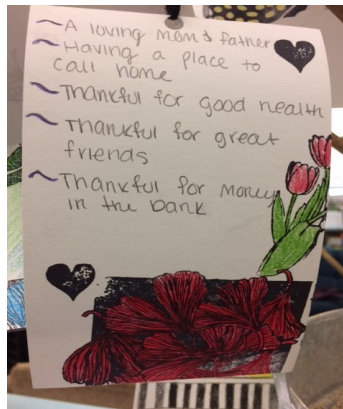 ~ A loving mom & father
~ Having a place to
call home
~ Thankful for good health
~ Thankful for great
friends
~ Thankful for money
in the bank